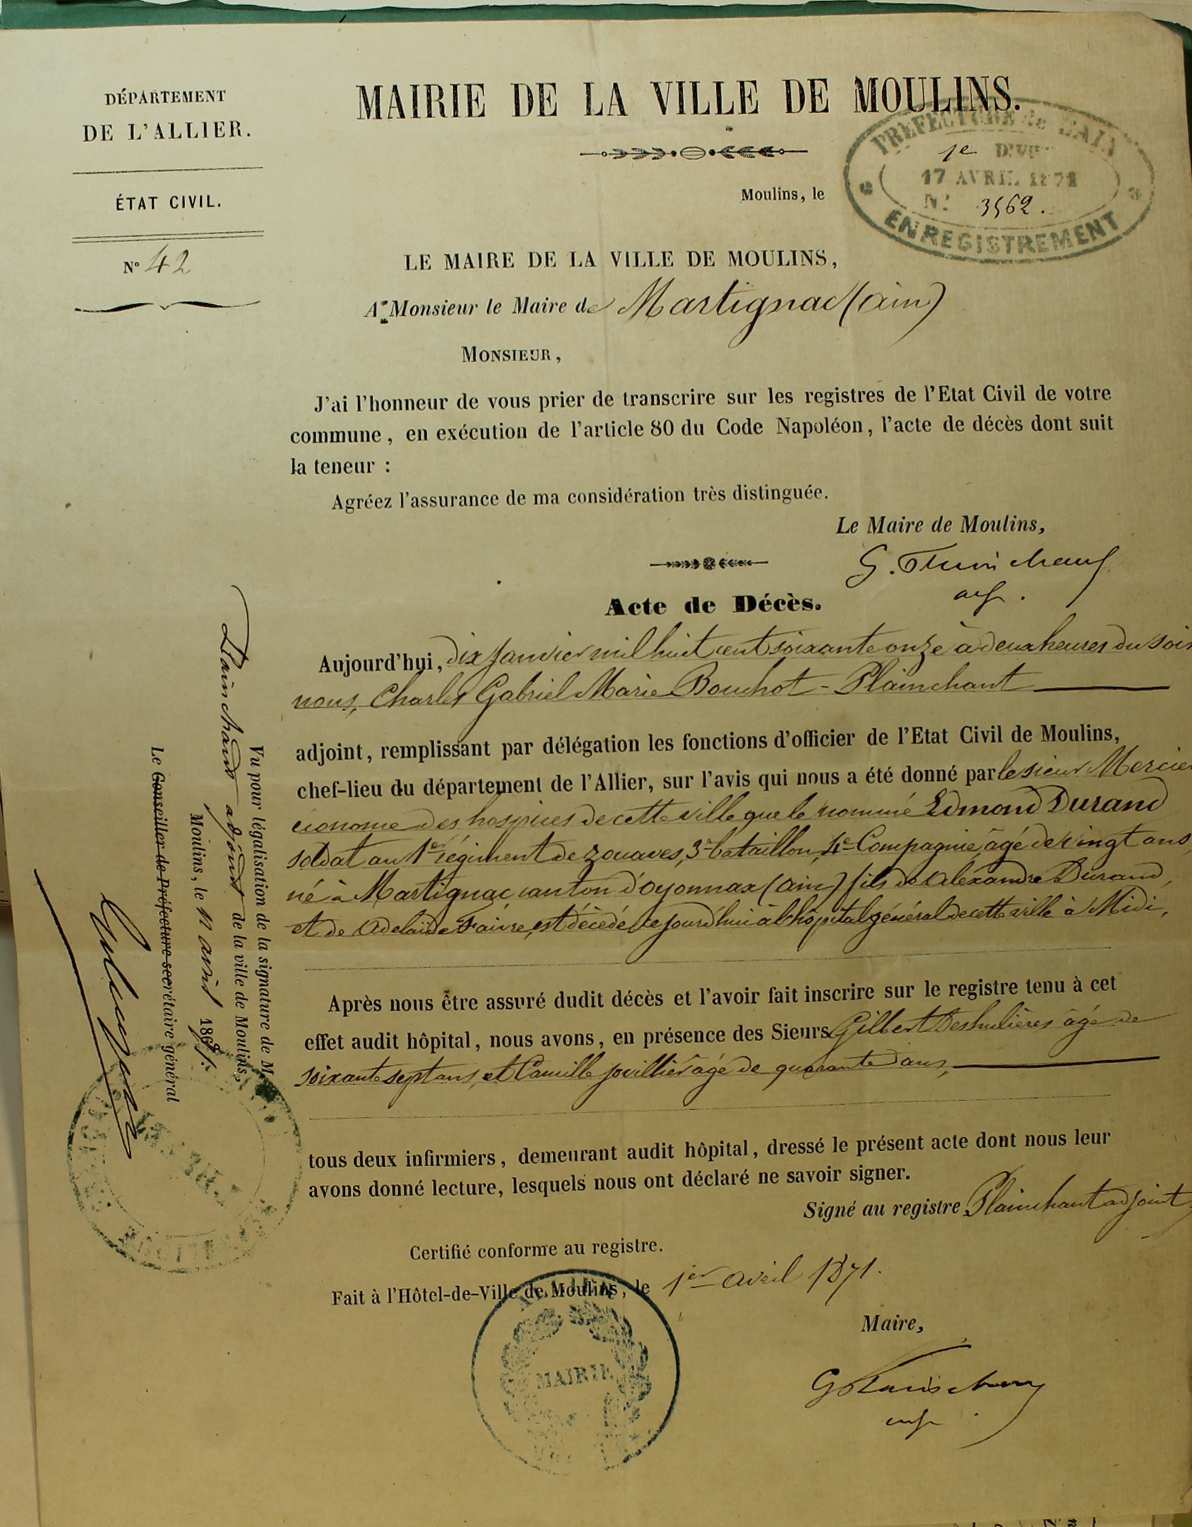 DÉPARTEMENT
DE L'ALLIER.
ÉTAT CIVIL.
N° 42
MAIRIE DE LA VILLE DE MOULINS.
PRÉFECTURE de L'AIN
1e DIV
17 AVRIL 1871
N° 3562.
ENREGISTREMENT
Moulins, le
LE MAIRE DE LA VILLE DE MOULINS,
A Monsieur le Maire de Martignac (ain)
MONSIEUR,
J'ai l'honneur de vous prier de transcrire sur les registres de l'Etat Civil de votre
commune, en exécution de l'article 80 du Code Napoléon, l'acte de décès dont suit
la teneur :
Agréez l'assurance de ma considération très distinguée.
Le Maire de Moulins,
Acte de Décès.
Aujourd'hui, dix janvier mil huit cent soixante onze à deux heures du soir
nous, Charles Gabriel Marie Bouchot-Plainchant
adjoint, remplissant par délégation les fonctions d'officier de l'Etat Civil de Moulins,
chef-lieu du département de l'Allier, sur l'avis qui nous a été donné par le sieur Mercier
économe des hospices de cette ville que le nommé Edmond Durand
soldat au 1er régiment de zouaves, 3e bataillon, 4e Compagnie âgé de vingt ans,
né à Martignac canton d'oyonnax (ain) fils de Alexandre Durand,
et de Adelaïde Faivre, est décédé ce jourd'hui à l'hôpital général de cette ville à Midi,
Après nous être assuré dudit décès et l'avoir fait inscrire sur le registre tenu à cet
effet audit hôpital, nous avons, en présence des Sieurs Gilbert Deshulières âgé de
soixante sept ans, et Camille Jouillier âgé de quarante ans,
tous deux infirmiers, demeurant audit hôpital, dressé le présent acte dont nous leur
avons donné lecture, lesquels nous ont déclaré ne savoir signer.
Signé au registre Plainchant adjoint
Certifié conforme au registre.
Fait à l'Hôtel-de-Ville de Moulins, le 1er avril 1871.
Maire,
MAIRIE
Vu pour légalisation de la signature de M.
Plainchant adjoint de la ville de Moulins,
Moulins, le 11 avril 1871.
Le Conseiller de Préfecture secrétaire général